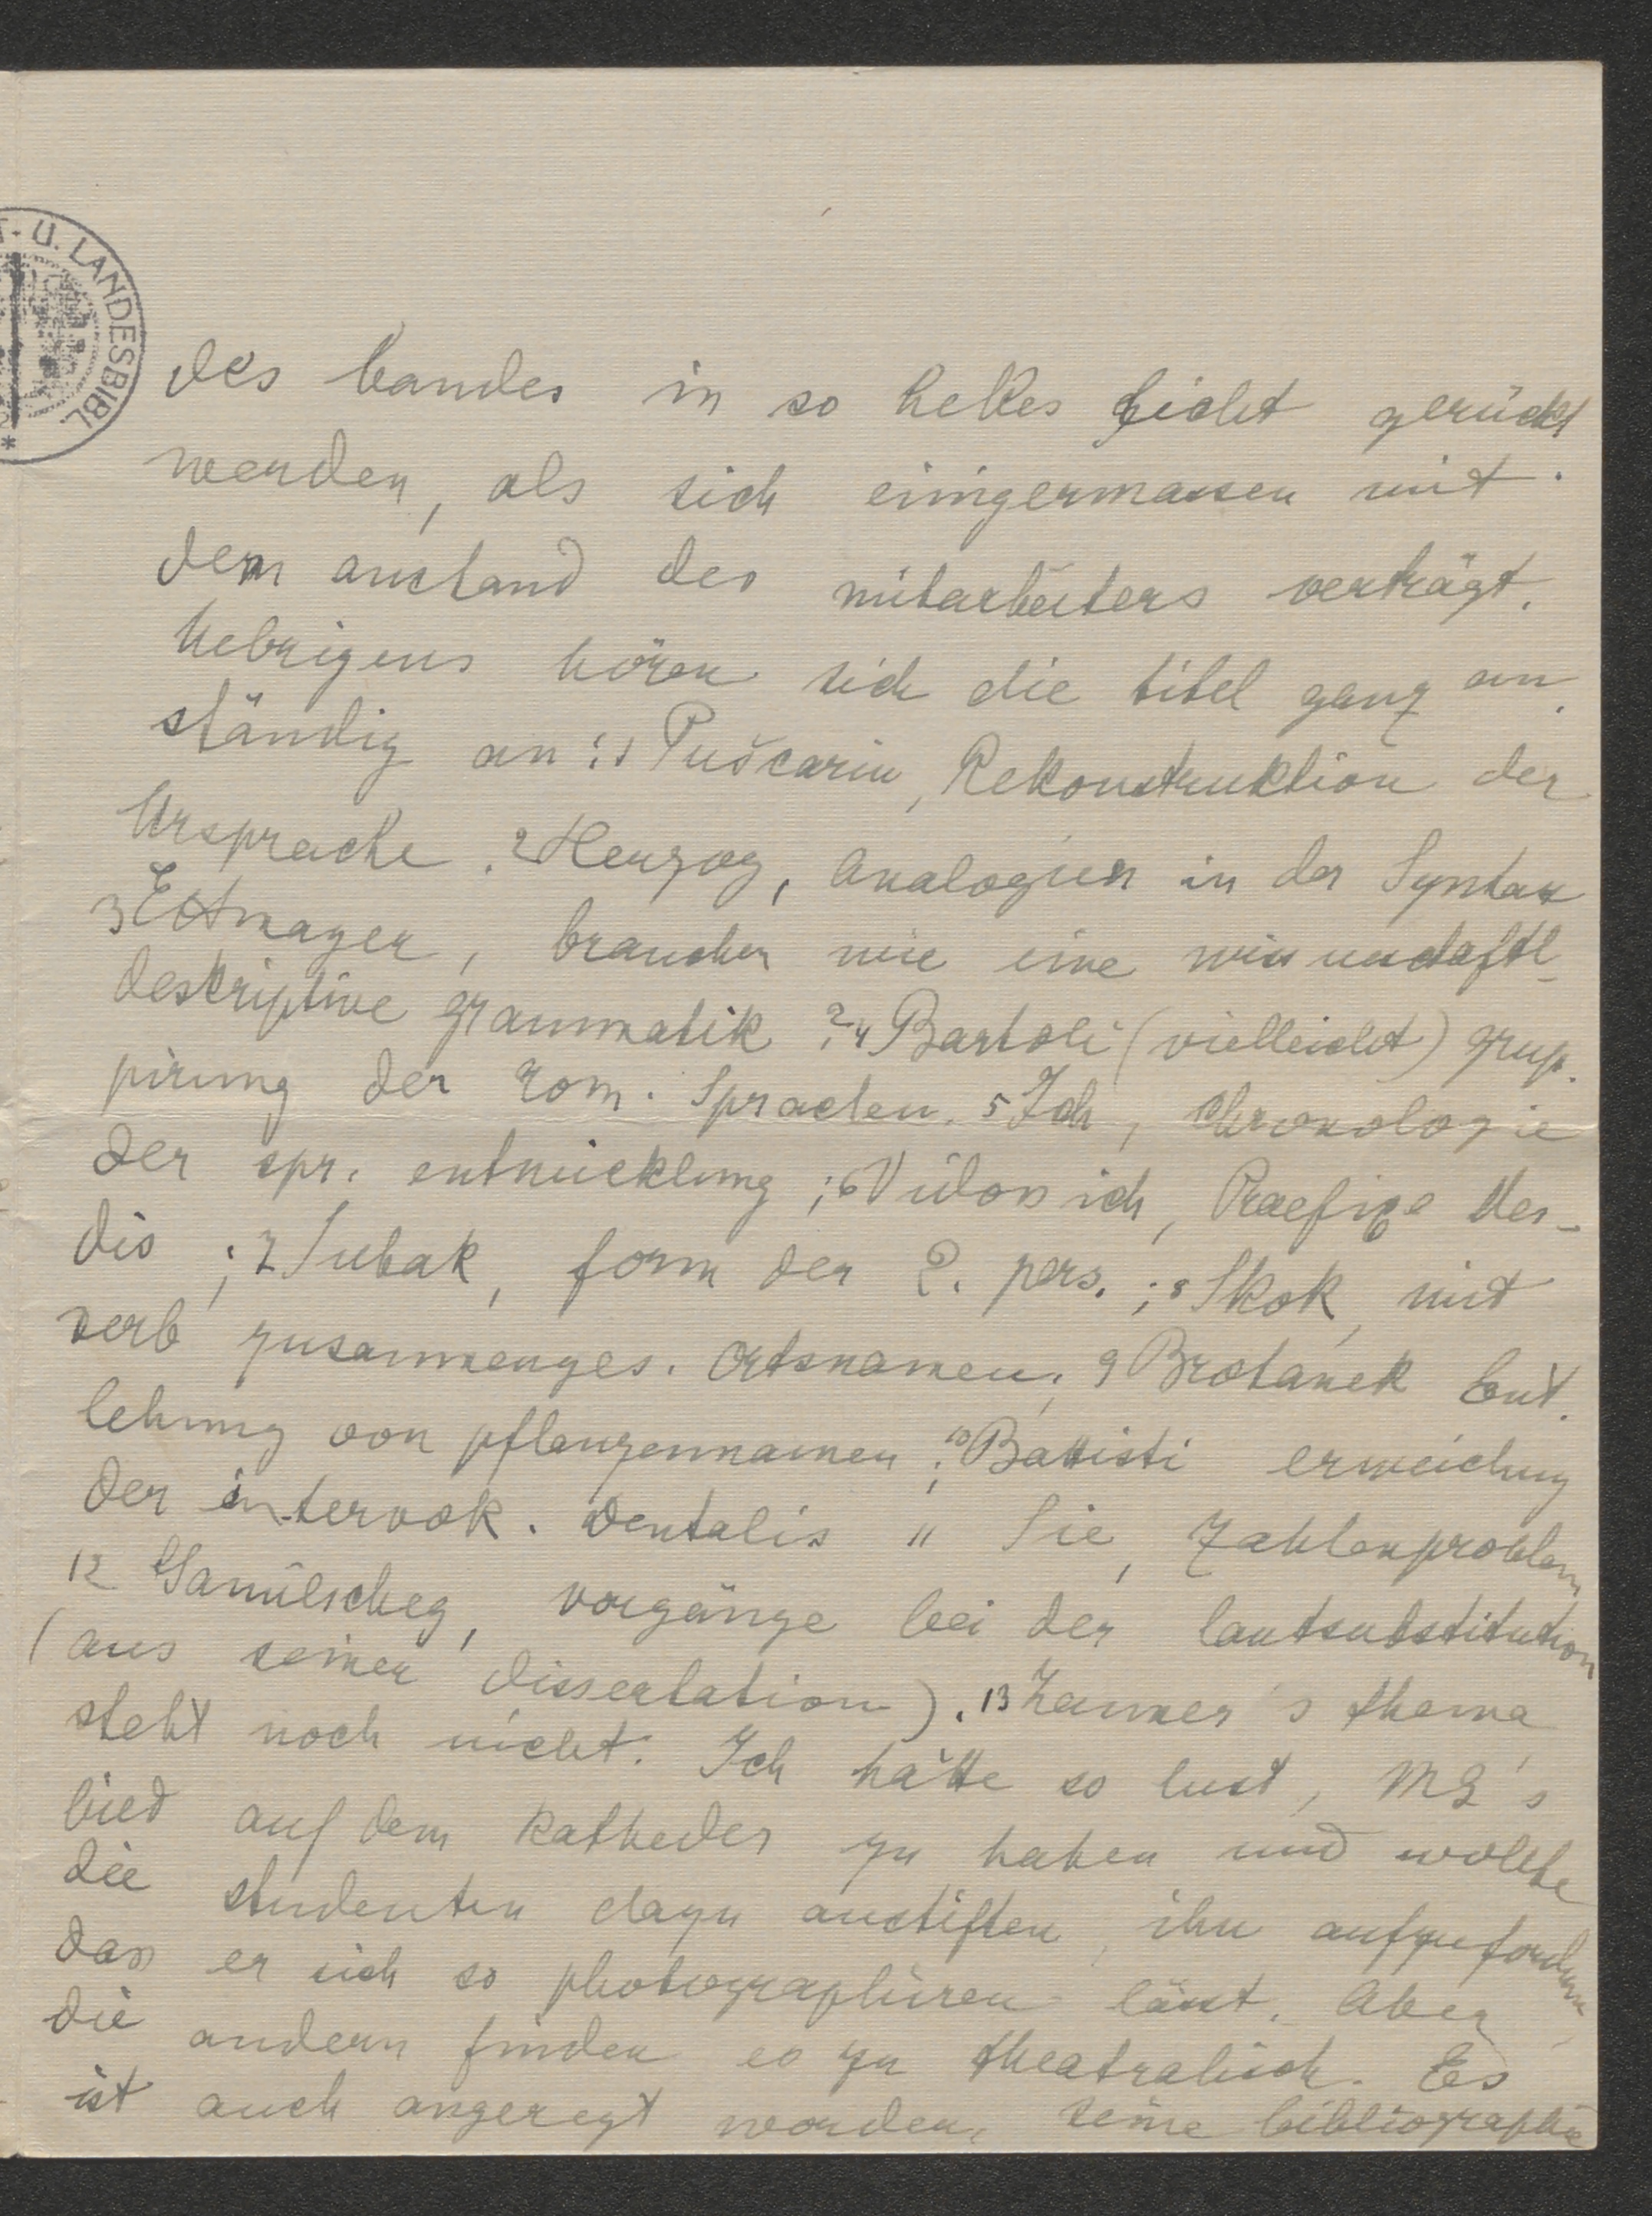 T- U. LANDESBIBL.
*
des bandes in so helles licht gerückt
werden, als sich einigermassen mit
dem anstand des mitarbeiters verträgt.
Uebrigens hören sich die titel ganz an
ständig an: 1 Pušcariu, Rekonstruktion der
Ursprache. 2 Herzog, Analogien in der Syntax
3 Ettmayer, brauchen wie eine wissenschaftl
deskriptive grammatik? 4 Bartoli (vielleicht) grup.
pirung der rom. Sprachen. 5 Ich, Chronologie
der spr. entwicklung; 6 Vidossich, Praefixe des-
dis; 7 Subak, form der 2. pers.; 8 Skok, mit
verb zusammenges. Ortsnamen; 9 Brotanek Ent.
lehnung von pflanzennamen; 10 Battisti erweichung
der intervok. dentalis 11 Sie, Zahlenproblem
12 Gamilscheg, vorgänge bei der lautsubstitution
(aus seiner dissertation). 13 Zauner's thema
steht noch nicht. Ich hätte so lust, ML's
bild auf dem katheder zu haben und wollte
die studenten dazu anstiften, ihn aufzufordern,
dass er sich so photographiren lässt. Aber
die andern finden es zu theatralisch. Es
ist auch angeregt worden, seine bibliographie